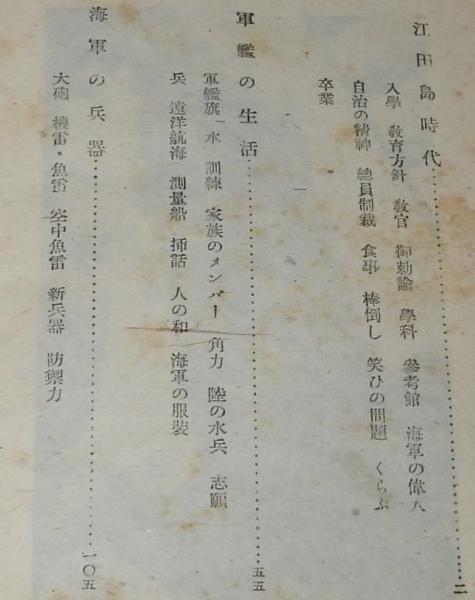 江田島時代……………………二
入學 教育方針 教官 御勅諭 學科 參考館 海軍の偉人
自治の精神 總員制裁 食事 棒倒し 笑ひの問題 くらぶ
卒業
軍艦の生活……………………五五
軍艦旗 水 訓練 家族のメンバー 角力 陸の水兵 志願
兵 遠洋航海 測量船 挿話 人の和 海軍の服裝
海軍の兵器……………………一〇五
大砲 機雷・魚雷 空中魚雷 新兵器 防禦力